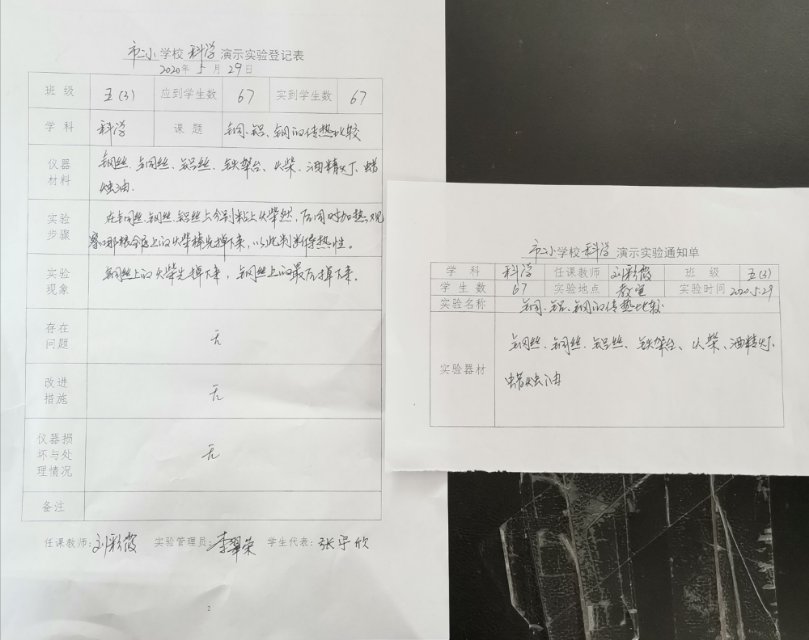 市二小学校科学演示实验登记表
2020年5月29日
班 级 五(3) 应到学生数 67 实到学生数 67
学 科 科学 课 题 铜、铝、钢的传热比较
仪器材料 钢丝、铜丝、铝丝、铁架台、火柴、酒精灯、蜡
烛油.
实验步骤 在铜丝、钢丝、铝丝上分别粘上火柴
来,以此判断传热性。
实验现象 铜丝上的火柴先掉下来,钢丝上的最后掉下来。
存在问题 无
改进措施 无
仪器损坏与处理情况 无
备注
任课教师:刘彩霞 实验管理员:李翠荣 学生代表:张宇欣
2
市二小学校科学演示实验通知单
学 科 科学 任课教师 刘彩霞 班 级 五(3)
学 生 数 67 实验地点 教室 实验时间 2020.5.29
实验名称 铜、铝、钢的传热比较
实验器材 钢丝、铜丝、铝丝、铁架台、火柴、酒精灯、
蜡烛油